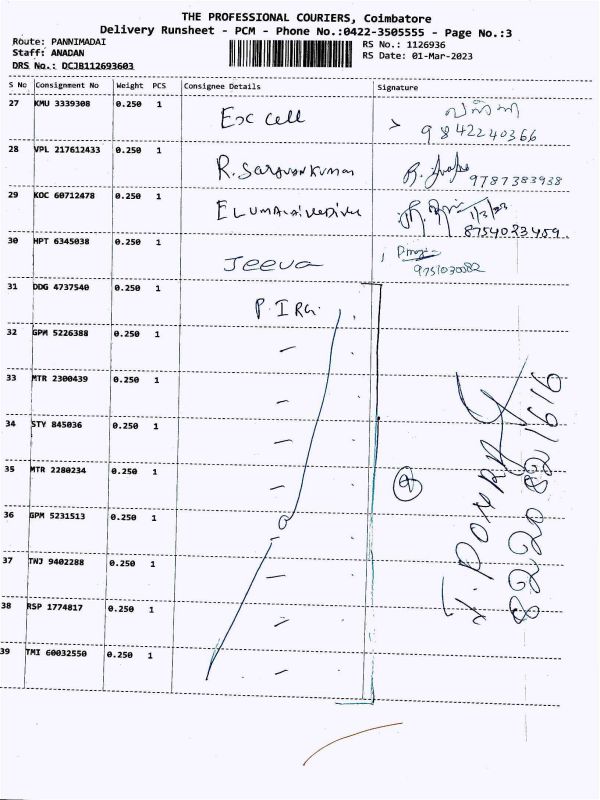 THE PROFESSIONAL COURIERS, Coimbatore
Delivery Runsheet - PCM - Phone No.:0422-3505555 - Page No.:3
Route: PANNIMADAI
Staff: ANADAN
DRS No.: DCJB112693603
RS No.: 1126936
RS Date: 01-Mar-2023
S No Consignment No Weight PCS Consignee Details Signature
27 KMU 3339308 0.250 1 Exc cell
9842240366
28 VPL 217612433 0.250 1 R. Saravankumar 9787383938
29 KOC 60712478 0.250 1 1/3/23
8754023459
30 HPT 6345038 0.250 1 Jeeva
9751030082
31 DDG 4737540 0.250 1 P. IRa
32 GPM 5226388 0.250 1 -
33 MTR 2300439 0.250 1 -
34 STY 845036 0.250 1 -
35 MTR 2280234 0.250 1 -
36 GPM 5231513 0.250 1 -
37 TNJ 9402288 0.250 1 -
38 RSP 1774817 0.250 1 -
39 TMI 60032550 0.250 1 -
8220821616